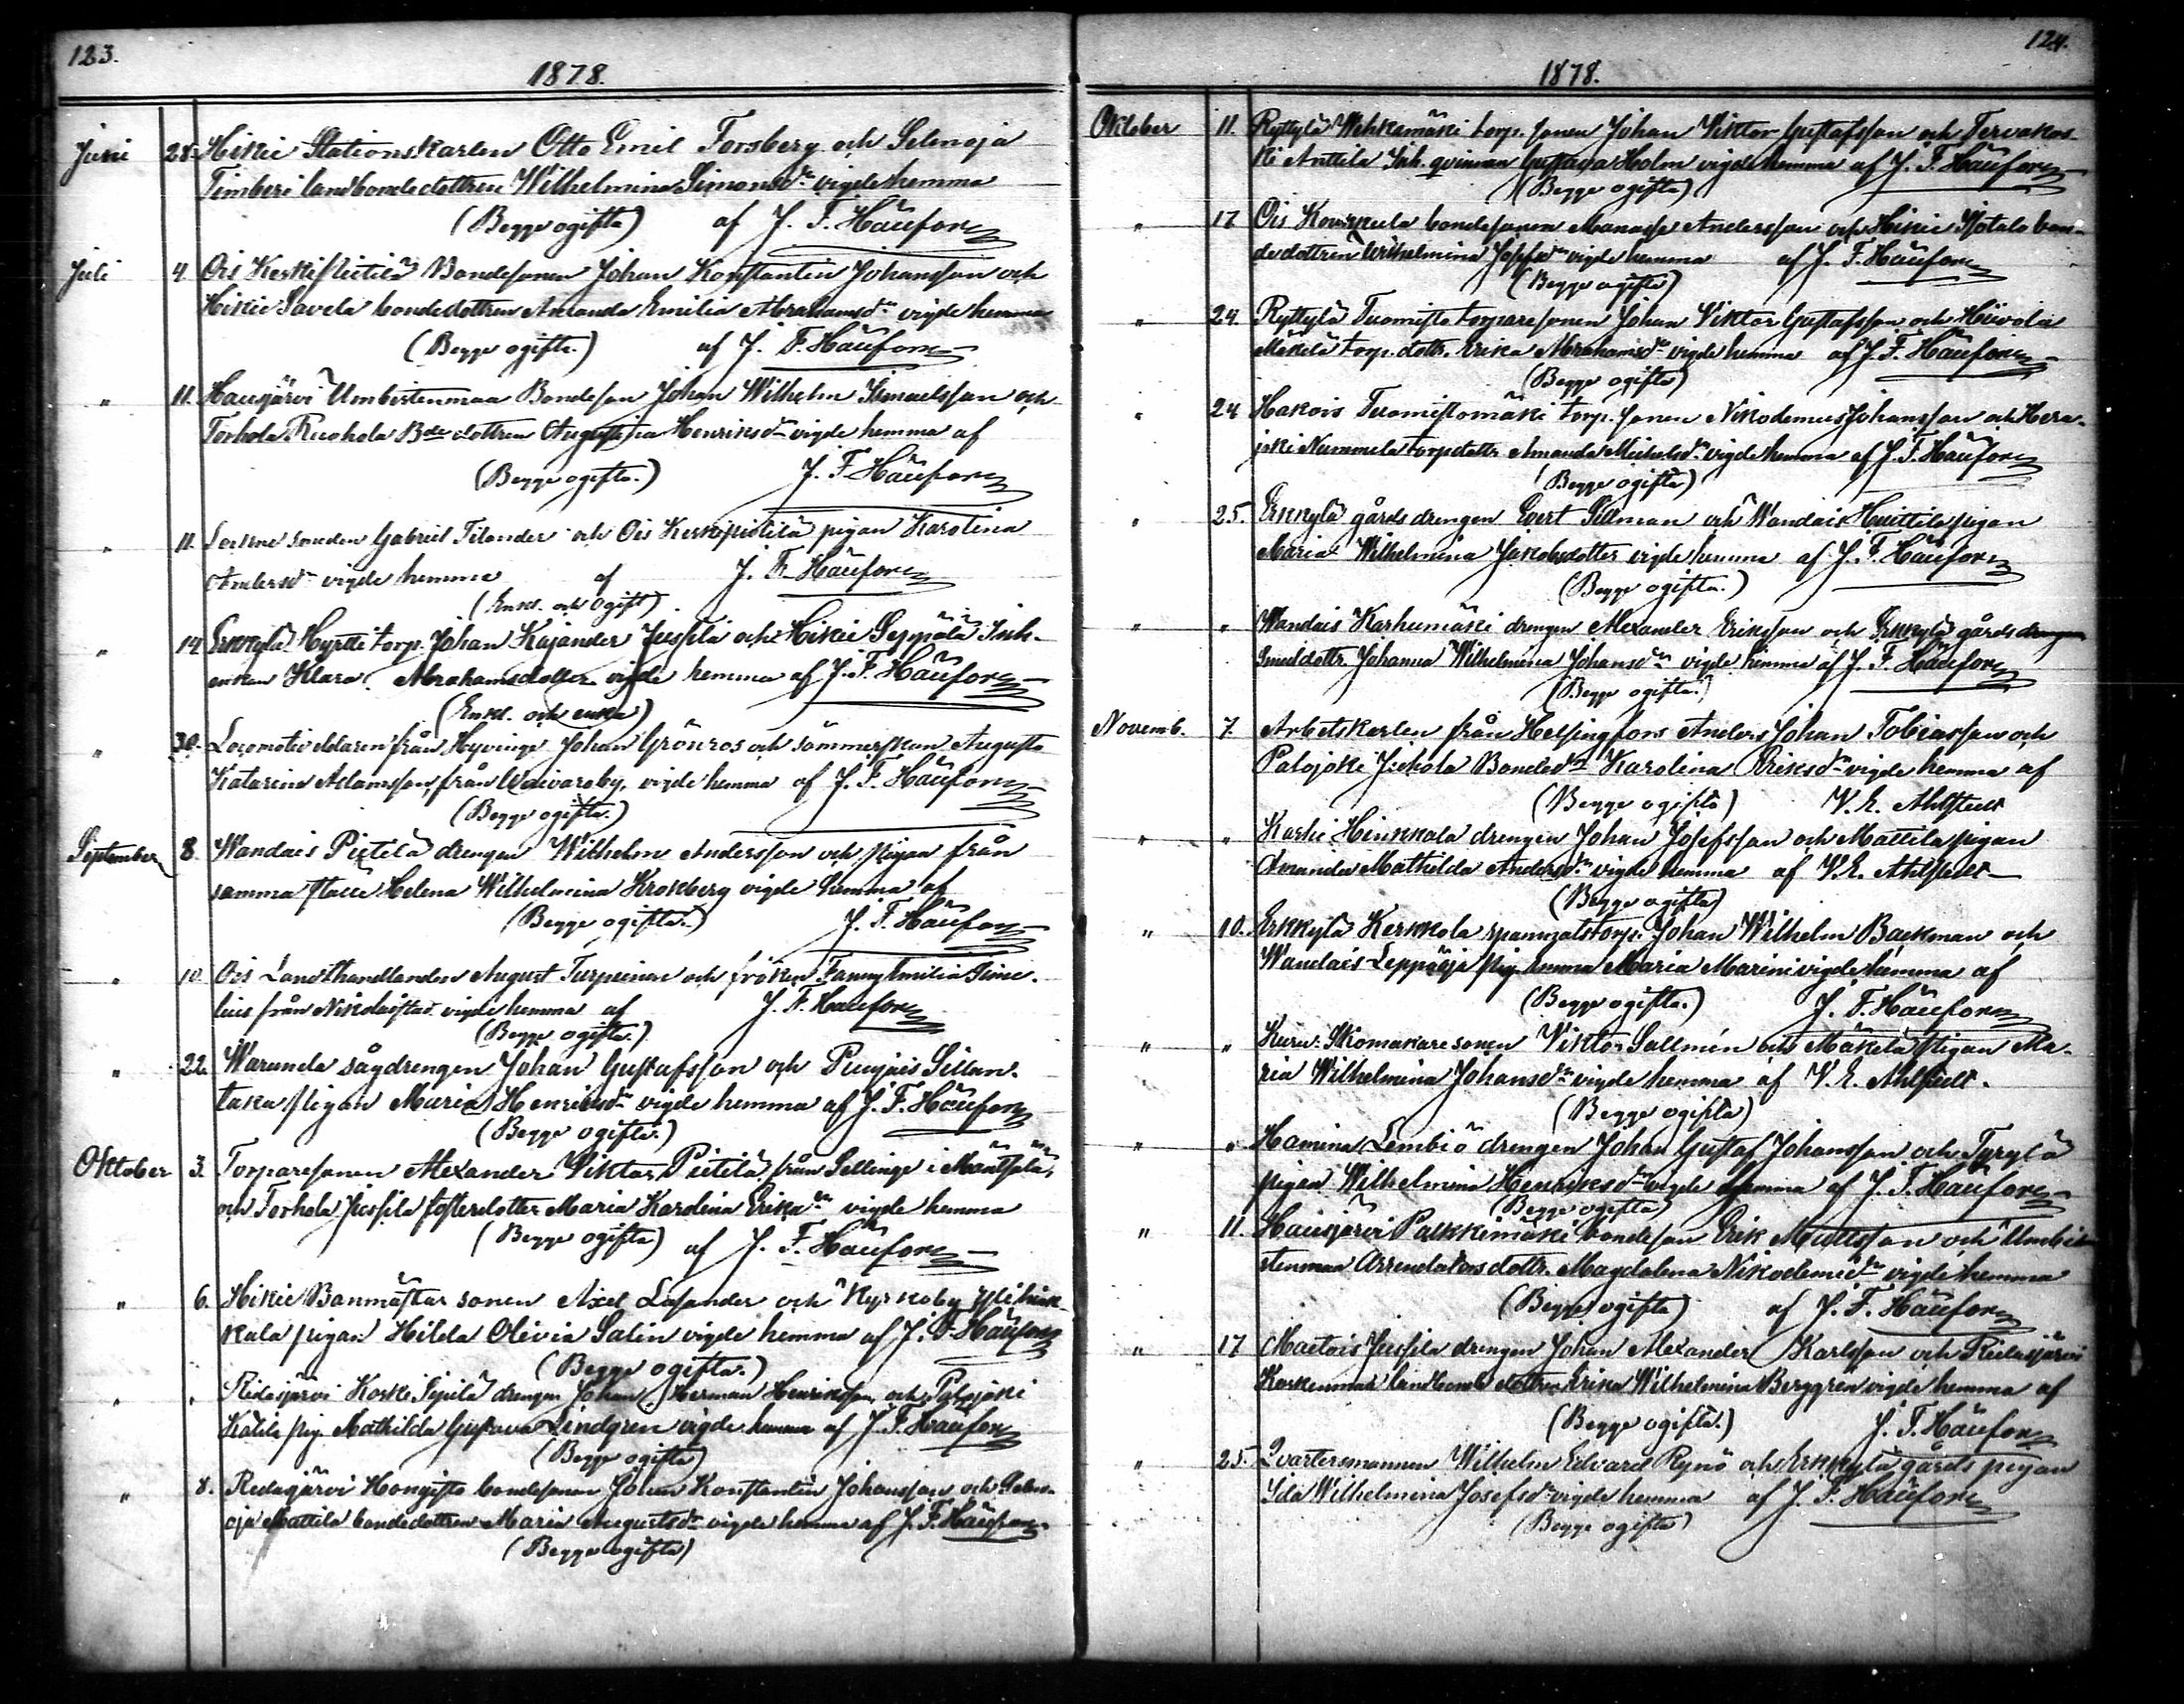 123.
1878.
Juni 28. Hikie Stationskarlen Otto Emil Forsberg och Selenoja
Timberi landbondedottren Wilhelmina Simonsdr vigde hemma
(Begge ogifta) af J. F. Häufors
Juli 4. Ois Keskipietilä Bondesonen Johan Konstantin Johansson och
Hikie Savela bondedottren Amanda Emilia Abrahamsdr vigde hemma
(Begge ogifta.) af J. F. Häufors
" 11. Hausjärvi Umbistenmaa Bondeson Johan Wilhelm Ismaelsson och
Torhola Ruohola Bde dottren Augustina Henriksdr vigde hemma af
(Begge ogifta.) J. F. Häufors
" 11. smeden Gabriel Tilander och Ois Keskipietilä pigan Karolina
Andersdr vigde hemma af J. F. Häufors
(Enkl. och Ogift)
" 14. Erkkylä Hyrtti torp. Johan Kajander Jussila och Hikie Seppälä Inh.
enkan Klara Abrahamsdotter vigde hemma af J. F. Häufors
(Enkl. och enka)
" 30. Locomotiv eldaren från Hyvinge Johan Grönros och sömmerskan Augusta
Katarina Adamsson, från by, vigde hemma af J. F. Häufors
(Begge ogifta.)
September 8. Wandais Pietilä drengen Wilhelm Andersson och pigan från
samma ställe Helena Wilhelmina Krokberg vigde hemma af
(Begge ogifta.) J. F. Häufors
" 10. Ois Landthandlanden August Turpeinen och fröken Fanny Emilia Sime-
lius från Nikolaistad vigde hemma af J. F. Häufors
(Begge ogifta.)
" 22. Warunda sågdrengen Johan Gustafsson och Puujais Sillan-
taka pigan Maria Henriksdr vigde hemma af J. F. Häufors
(Begge ogifta.)
Oktober 3. Torparesonen Alexander Viktor Pietilä från Sellinge i Mäntsälä,
och Torhola Jussila fosterdotter Maria Karolina Eriksdr vigde hemma
(Begge ogifta) af J. F. Häufors
" 6. Hikie Banmästar sonen Axel Lasander och Kyrkoby
kala pigan Hilda Olivia Salin vigde hemma af J. F. Häufors
(Begge ogifta.)
" " Ridasjärvi Koski drengen Johan Herman Henriksson och Palojoki
Kätilä pig. Mathilda Gustava Lindgren vigde hemma af J. F. Häufors
(Begge ogifta)
" 8. Ridasjärvi Hongisto bondesonen Johan Konstantin Johansson och Selen-
oja Mattila bondedottren Maria Augustsdr vigde hemma af J. F. Häufors
(Begge ogifta)
124.
1878.
Oktober 11. Ryttylä Wehkamäki torp. sonen Johan Viktor Gustafsson och Tervakos-
ki Anttila Inh. qvinnan Gustava Holm vigde hemma af J. F. Häufors
(Begge ogifta)
" 17 Ois bondesonen Manasse Andersson och Hikie Isotalo bon-
dedottren Wilhelmina Josefsdr vigde hemma af J. F. Häufors
(Begge ogifta)
" 24. Ryttylä Tuomisto torparesonen Johan Viktor Gustafsson och Hiivola
Mäkelä torp. dottr. Erika Abrahamsdr vigde hemma af J. F. Häufors
(Begge ogifta)
" 24 Hakois Tuomistomäki torp. sonen Nikodemus Johansson och Hera-
joki Nummela torpdottr Amanda Michelsdr vigde hemma af J. F. Häufors
(Begge ogifta)
" 25. Erkkylä gårds drengen Evert Sillman och Wandais Huittila pigan
Maria Wilhelmina Jakobsdotter vigde hemma af J. F. Häufors
(Begge ogifta.)
" " Wandais Karhumäki drengen Alexander Eriksson och Erkkylä gårds drengen
Smeddottr. Johanna Wilhelmina Johansdr vigde hemma af J. F. Häufors
(Begge ogifta.)
Novemb. 7. Arbetskarlen från Helsingfors Anders Johan Tobiasson och
Palojoki Bondedr Karolina Eriksdr vigde hemma af
(Begge ogifta) V. E. Ahlstedt
" " Karhi Hinkkala drengen Johan Josefsson och Mattila pigan
Amanda Mathilda Andersdr vigde hemma af V. E. Ahlstedt
(Begge ogifta)
" 10. Erkkylä Kerkkola spanmålstorp. Johan Wilhelm Backman och
Wandais Leppäoja pig. Emma Maria Marini vigde hemma af
(Begge ogifta.) J. F. Häufors
" " Kuru. Skomakare sonen Viktor Sallmén och Mäkelä pigan Ma-
ria Wilhelmina Johansdr vigde hemma af V. E. Ahlstedt.
(Begge ogifta)
" " Hamina Lembiö drengen Johan Gustaf Johansson och Tyrylä
pigan Wilhelmina Henriksdr vigde hemma af J. F. Häufors
(Begge ogifta)
" 11. Hausjärvi Palkkimäki bondeson Erik Mattsson och Umbi
stenmaa Arrendatorsdottr. Magdalena Nikodemidr vigde hemma
(Begge ogifta) af J. F. Häufors
" 17 Maetois Jussila drengen Johan Alexander Karlsson och Ridasjärvi
Koskenmaa landbonde dottren Erika Wilhelmina Berggren vigde hemma af
(Begge ogifta.) J. F. Häufors
" 25. Qvartersmannen Wilhelm Edvard Rynö och Erkkylä gårds pigan
Ida Wilhelmina Josefsdr vigde hemma af J. F. Häufors
(Begge ogifta)